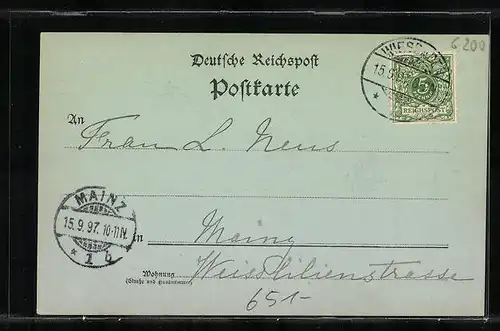 6200
WIESB
15.9.97
5
REICHSPOST
Deutsche Reichspost
Postkarte
An
Frau L. Neus
MAINZ
15.9.97. 10-11N.
* 1 b
in Mainz
Wohnung
(Straße und Hausnummer)
Weisslilienstrasse
651-